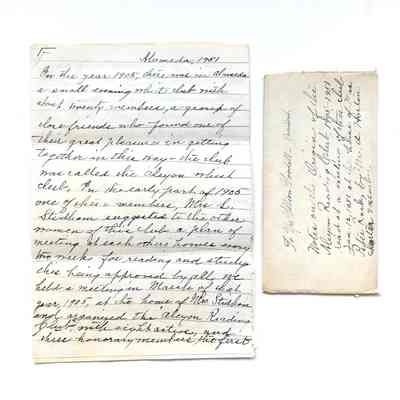 1-
Alameda, 1951
In the year 1905, there was in Alameda
a small evening whist club with
about twenty members, a group of
close friends who found one of
their great pleasures in getting
together in this way - the club
was called the Alcyon Whist
Club. In the early part of 1905
one of these members, Mrs. L.
Stidham suggested to the other
women of this club a plan of
meeting at each others homes every
two weeks for reading and study
this being approved by all, we
held a meeting in March of that
year, 1905, at the home of Mrs Stidham
and organized the Alcyon Reading
Club with eight active, and
three honorary members the first
Notes on the Origin of the
Alcyon Reading Club 1905-1951
read at a meeting of the club
Jan
by Mrs